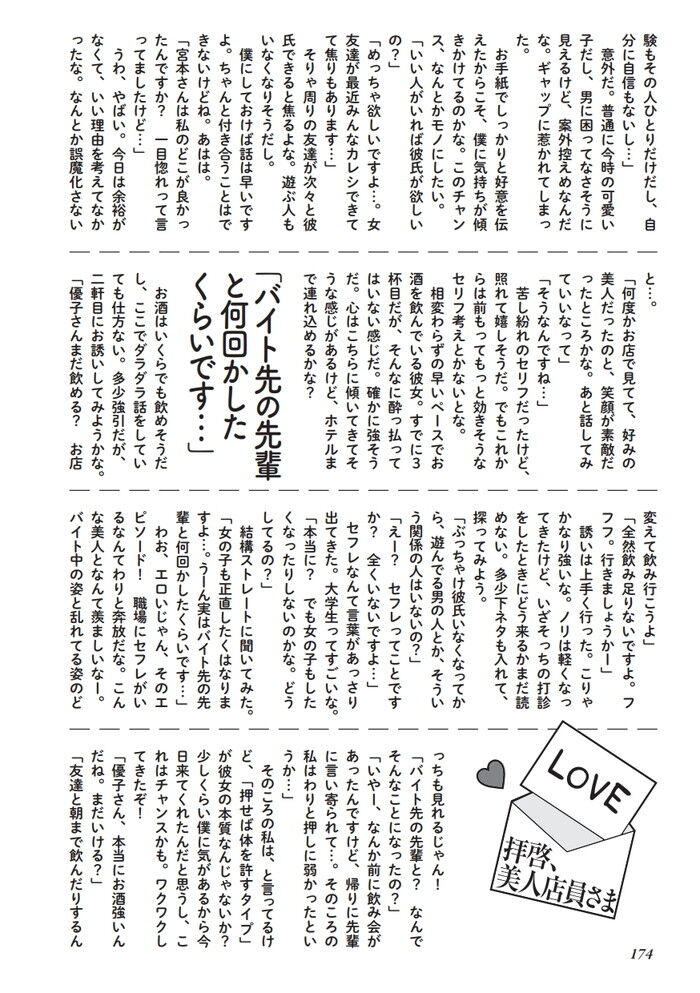 験もその人ひとりだけだし、自
分に自信もないし…」
　意外だ。普通に今時の可愛い
子だし、男に困ってなさそうに
見えるけど、案外控えめなんだ
な。ギャップに惹かれてしまっ
た。
　お手紙でしっかりと好意を伝
えたからこそ、僕に気持ちが傾
きかけてるのかな。このチャン
ス、なんとかモノにしたい。
「いい人がいれば彼氏が欲しい
の？」
「めっちゃ欲しいですよ…。女
友達が最近みんなカレシできて
て焦りもあります…」
　そりゃ周りの友達が次々と彼
氏できると焦るよな。遊ぶ人も
いなくなりそうだし。
　僕にしておけば話は早いです
よ。ちゃんと付き合うことはで
きないけどね。あはは。
「宮本さんは私のどこが良かっ
たんですか？　一目惚れって言
ってましたけど…」
　うわ、やばい。今日は余裕が
なくて、いい理由を考えてなか
ったな。なんとか誤魔化さない
と…。
「何度かお店で見てて、好みの
美人だったのと、笑顔が素敵だ
ったところかな。あと話してみ
ていいなって」
「そうなんですね…」
　苦し紛れのセリフだったけど、
照れて嬉しそうだ。でもこれか
らは前もってもっと効きそうな
セリフ考えとかないとな。
　相変わらずの早いペースでお
酒を飲んでいる彼女。すでに３
杯目だが、そんなに酔っ払って
はいない感じだ。確かに強そう
だ。心はこちらに傾いてきてそ
うな感じがあるけど、ホテルま
で連れ込めるかな？
「バイト先の先輩
と何回かした
くらいです…」
　お酒はいくらでも飲めそうだ
し、ここでダラダラ話をしてい
ても仕方ない。多少強引だが、
二軒目にお誘いしてみようかな。
「優子さんまだ飲める？　お店
変えて飲み行こうよ」
「全然飲み足りないですよ。フ
フフ。行きましょうかー」
　誘いは上手く行った。こりゃ
かなり強いな。ノリは軽くなっ
てきたけど、いざそっちの打診
をしたときにどう来るかまだ読
めない。多少下ネタも入れて、
探ってみよう。
「ぶっちゃけ彼氏いなくなってか
ら、遊んでる男の人とか、そうい
う関係の人はいないの？」
「えー？　セフレってことです
か？　全くいないですよ…」
　セフレなんて言葉があっさり
出てきた。大学生ってすごいな。
「本当に？　でも女の子もした
くなったりしないのかな。どう
してるの？」
　結構ストレートに聞いてみた。
「女の子も正直したくはなりま
すよ…。うーん実はバイト先の先
輩と何回かしたくらいです…」
　わお、エロいじゃん、そのエ
ピソード！　職場にセフレがい
るなんてわりと奔放だな。こん
な美人となんて羨ましいなー。
バイト中の姿と乱れてる姿のど
っちも見れるじゃん！
「バイト先の先輩と？　なんで
そんなことになったの？」
「いやー、なんか前に飲み会が
あったんですけど、帰りに先輩
に言い寄られて…。そのころの
私はわりと押しに弱かったとい
うか…」
　そのころの私は、と言ってるけ
ど、「押せば体を許すタイプ」
が彼女の本質なんじゃないか？
少しくらい僕に気があるから今
日来てくれたんだと思うし、こ
れはチャンスかも。ワクワクし
てきたぞ！
「優子さん、本当にお酒強いん
だね。まだいける？」
「友達と朝まで飲んだりするん
LOVE
拝啓、
美人店員さま
174